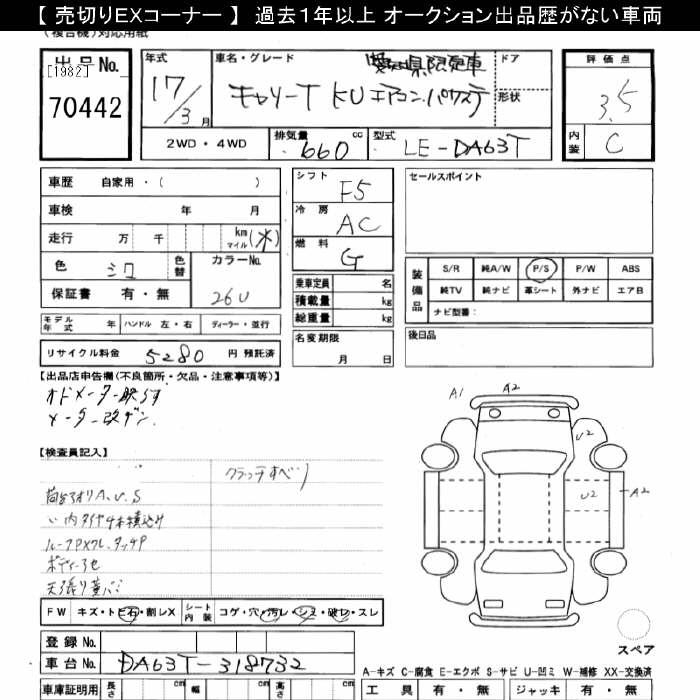 【 売切りEXコーナー 】 過去1年以上 オークション出品歴がない車両
(複合機)対応用紙
出品No.
[1982]
70442
年式
17/3月
車名・グレード
愛知県限定車
キャリーT KU エアコン.パワステ
ドア
形状
評価点
3.5
内装
C
2WD・4WD
排気量
660 cc
型式
LE-DA63T
車歴 自家用・( )
車検 年 月
走行 万 千 km マイル (不)
色 シロ
色替
カラーNo.
26U
保証書 有・無
シフト
F5
冷房
AC
燃料
G
乗車定員 名
積載量 kg
総重量 kg
セールスポイント
装備品
S/R 純A/W P/S P/W ABS
純TV 純ナビ 革シート 外ナビ エアB
ナビ型番:
モデル年式 年 ハンドル 左・右 ディーラー・並行
リサイクル料金 5280 円 預託済
名変期限
月 日
後日品
【出品店申告欄(不良箇所・欠品・注意事項等)】
メーター改ザン.
【検査員記入】
クラッチすべり
荷台アオリA.U.S
〃内タイヤ4本積込み
ルーフPXクレ.タッチP
ボディー3色
天張り黄バミ
FW キズ・トビ石・割レX
シート内装
コゲ・穴・汚レ・シミ・破レ・スレ
登録No.
車台No. DA63T-318732
車庫証明用 長さ cm 幅 cm 高さ cm
A1
A2
U2
U2
A2
スペア
A-キズ C-腐食 E-エクボ S-サビ U-凹ミ W-補修 XX-交換済
工具 有・無 ジャッキ 有・無